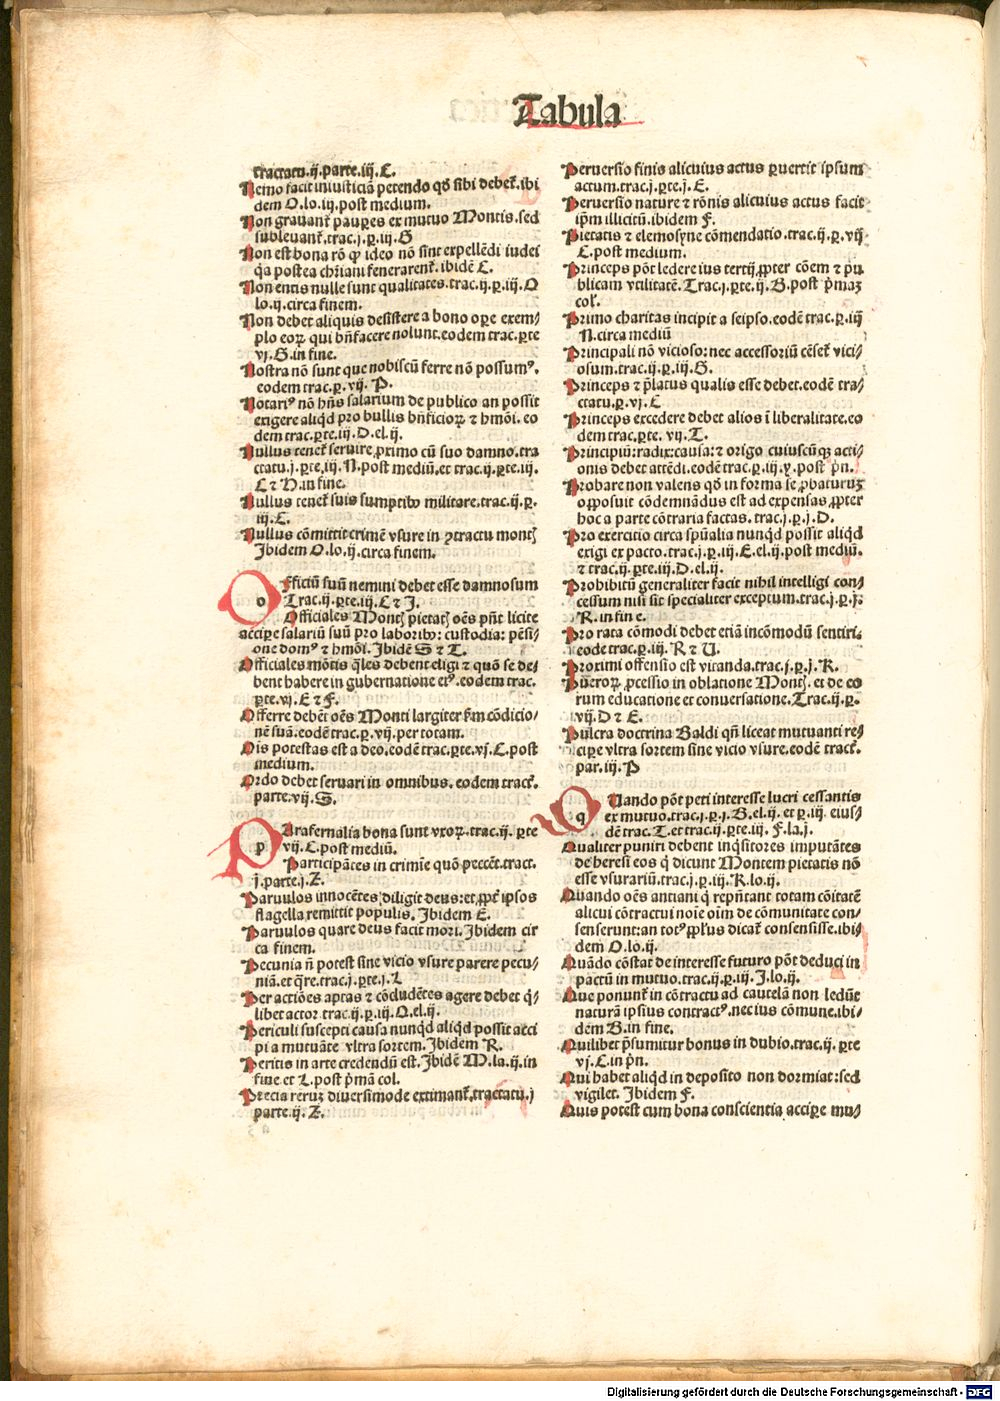 Tabula
tractatu.ij.parte.iij.C.
Nemo facit iniusticiā petendo qđ sibi debet̄.ibi
dem O.lo.iij.post medium.
Non grauant̄ pauꝑes ex mutuo Montis.sed
subleuant̄.trac.j.ꝑ.iij.G
Non est bona rō ꝙ ideo nō sint expellēdi iudei
q̄a postea ch̄riani fenerarent̄.ibidē C.
Non entis nulle sunt qualitates.trac.ij.ꝑ.iij.O
lo.ij.circa finem.
Non debet aliquis desistere a bono oꝑe exem⸗
plo eoꝝ qui bn̄facere nolunt.eodem trac.ꝑte
vj.G.in fine.
Nostra nō sunt que nobiscū ferre nō possumꝰ.
eodem trac.ꝑ.vij.P.
Notariꝰ nō hn̄s salarium de publico an possit
exigere aliqd̄ pro bullis bn̄ficioꝝ ⁊ hmōi.eo
dem trac.ꝑte.iij.D.el.ij.
Nullus tenet̄ seruire ꝓximo cū suo damno.tra
ctatu.j.ꝑte.iij.N.post mediū.et trac.ij.ꝑte.iij.
C ⁊ H.in fine.
Nullus tenet̄ suis sumptibꝰ militare.trac.ij.ꝑ.
iij.C.
Nullus cōmittit crimē vsure in ꝯtractu montꝭ
Ibidem O.lo.ij.circa finem.
Officiū suū nemini debet esse damnosum
Trac.ij.ꝑte.iij.C ⁊ I.
Officiales Montꝭ pietatꝭ oēs pn̄t licite
acciꝑe salariū suū pro laboribꝰ: custodia: pēsi⸗
one domꝰ ⁊ hmōi. Ibidē S ⁊ T.
Officiales mōtis q̄les debent eligi ⁊ quō se de⸗
bent habere in gubernatione etꝰ.eodem trac.
ꝑte.vj.E ⁊ F.
Offerre debēt oēs Monti largiter fm cōdicio⸗
nē suā.eodē trac.ꝑ.vij.per totam.
Ois potestas est a deo.eodē trac.ꝑte.vj.C.post
medium.
Ordo debet seruari in omnibus. eodem tract̄.
parte.vij.S.
Parafernalia bona sunt vxoꝝ.trac.ij. ꝑte
vij.C.post mediū.
Participātes in crimīe quō peccēt.tract.
j.parte.j.Z.
Paruulos innocētes diligit deus:et ꝓpt̄ ipsos
flagella remittit populis. Ibidem E.
Paruulos quare deus facit mori. Ibidem cir
ca finem.
Pecunia n̄ potest sine vicio vsure parere pecu⸗
niā.et q̄re.trac.j.ꝑte.j.L
Per actiōes aptas ⁊ cōcludētes agere debet q̄⸗
libet actor.trac.ij.ꝑ.iij.O.el.ij.
Periculi suscepti causa nunqd̄ aliqd̄ possit acci
pi a mutuāte vltra sortem. Ibidem R.
Peritis in arte credendū est. Ibidē M.la.ij.in
fine et L.post p̄mā col.
Precia reruꝫ diuersimode extimant̄.tractatu.j
parte.ij.Z.
Peruersio finis alicuius actus ꝑuertit ipsum
actum.trac.j.ꝑte.j.E.
Peruersio nature ⁊ rōnis alicuius actus facit
ip̄m illicitū.ibidem F.
Pietatis ⁊ elemosyne cōmendatio.trac.ij.ꝑ.vij
C.post medium.
Princeps pōt ledere ius tertij ꝓpter cōem ⁊ pu
blicam vtilitatē. Trac.j.ꝑte.ij.B.post p̄maꝫ
col̄.
Primo charitas incipit a seipso.eodē trac.ꝑ.iij
N.circa mediū
Principali nō vicioso: nec accessoriū cēset̄ vici⸗
osum.trac.ij.ꝑ.iij.G.
Princeps ⁊ p̄latus qualis esse debet.eodē tra⸗
ctatu.ꝑ.vj.C
Princeps excedere debet alios ī liberalitate.eo
dem trac.ꝑte. vij.T.
Principiū: radix: causa: ⁊ origo cuiuscūqꝫ acti⸗
onis debet attēdi.eodē trac.ꝑ.iij.y.post p̄n.
Probare non valens qđ in forma se ꝓbaturuꝫ
opposuit cōdemnādus est ad expensas ꝓpter
hoc a parte cōtraria factas. trac.j.ꝑ.j.D.
Pro exercitio circa spūalia nunqd̄ possit aliqd̄
exigi ex pacto.trac.j.ꝑ.iij.E.el.ij.post mediū.
⁊ trac.ij.ꝑte.iij.D.el.ij.
Prohibitū generaliter facit nihil intelligi con⸗
cessum nisi sit specialiter exceptum.trac.j.ꝑ.j.
R. in fine.
Pro rata cōmodi debet etiā incōmodū sentiri.
eodē trac.ꝑ.iij.R ⁊ U.
Proximi offensio est vitanda.trac.j.ꝑ.j.R.
Pueroꝝ ꝓcessio in oblatione Montꝭ. et de eo
rum educatione et conuersatione. Trac.ij.ꝑ.
vij.D ⁊ E.
Pulcra doctrina Baldi qn̄ liceat mutuanti re⸗
ciꝑe vltra sortem sine vicio vsure.eodē tract̄.
par.iij.P
Quando pōt peti interesse lucri cessantis
ex mutuo.trac.j.ꝑ.j.B.el.ij.et ꝑ.iij.eius⸗
dē trac.T.et trac.ij.ꝑte.iij. F.la.j.
Qualiter puniri debent inq̄sitores imputātes
de heresi eos q̄ dicunt Montem pietatis nō
esse vsurariū.trac.j.ꝑ.iij.R.lo.ij.
Quando oēs antiani q̄ repn̄tant totam cōitatē
alicui cōtractui noīe oīm de cōmunitate con⸗
senserunt:an totꝰ ppl̄us dicat̄ consensisse.ibi⸗
dem O.lo.ij.
Quādo cōstat de interesse futuro pōt deduci in
pactū in mutuo.trac.ij.ꝑ.iij.I.lo.ij.
Que ponunt̄ in cōtractu ad cautelā non ledūt
naturā ipsius contractꝰ.nec ius cōmune.ibi⸗
dem B.in fine.
Quilibet p̄sumitur bonus in dubio.trac.ij.ꝑte
vj.C.in p̄n.
Qui habet aliqd̄ in deposito non dormiat:sed
vigilet. Ibidem F.
Quis potest cum bona conscientia acciꝑe mu⸗
Digitalisierung gefördert durch die Deutsche Forschungsgemeinschaft - DFG